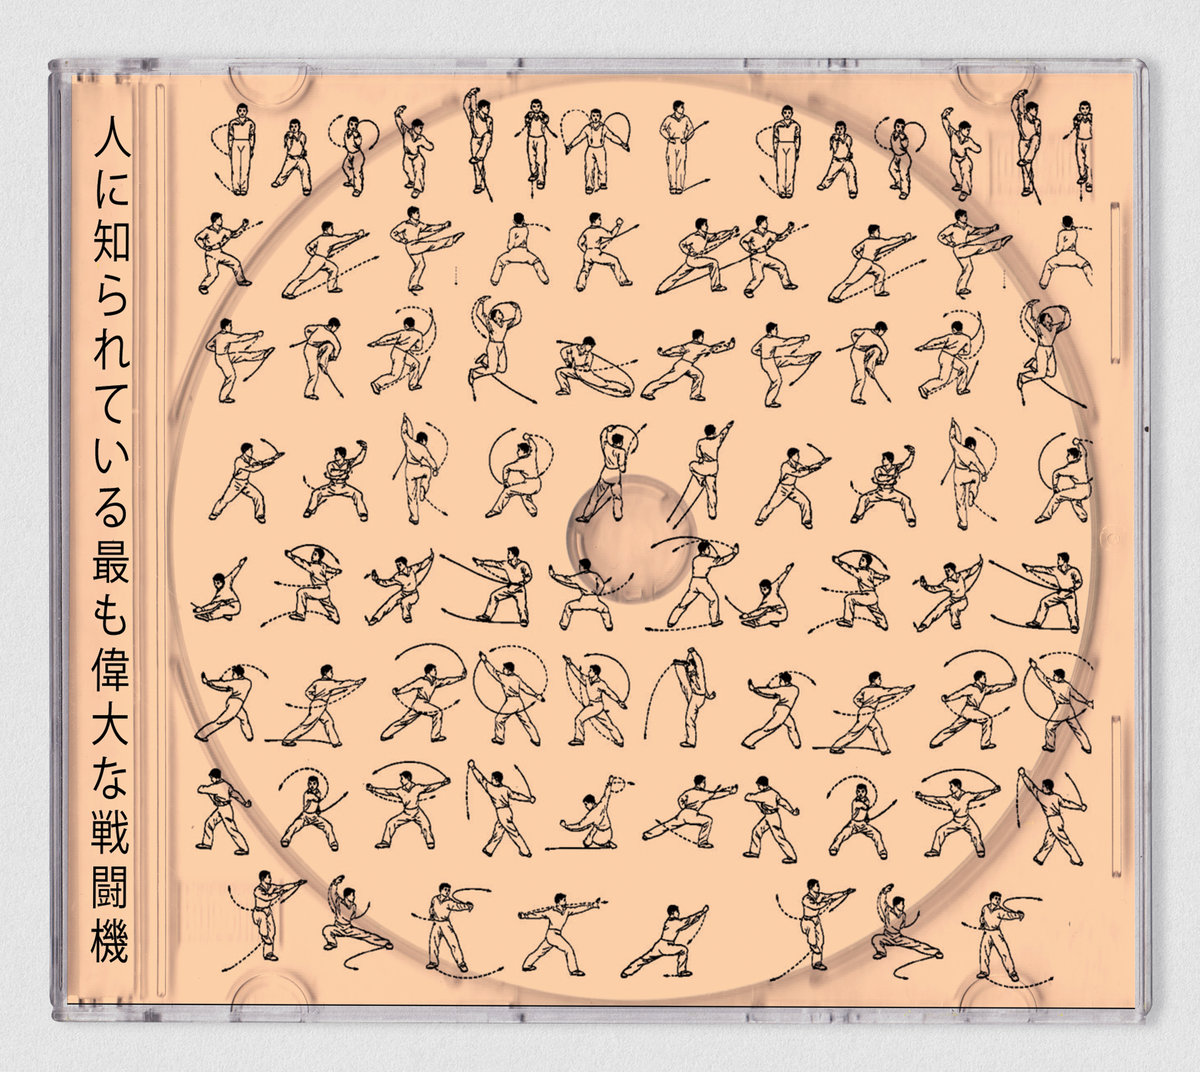 人に知られている最も偉大な戦闘機